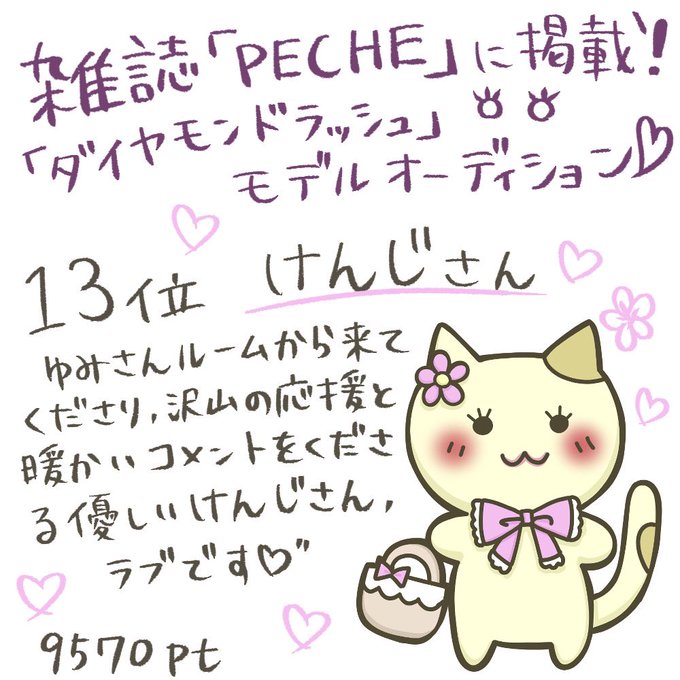 雑誌「PECHE」に掲載!
「ダイヤモンドラッシュ」
モデルオーディション
13位 けんじさん
ゆみさんルームから来て
くださり,沢山の応援と
暖かいコメントをくださ
る優しいけんじさん,
ラブです♡"
9570pt